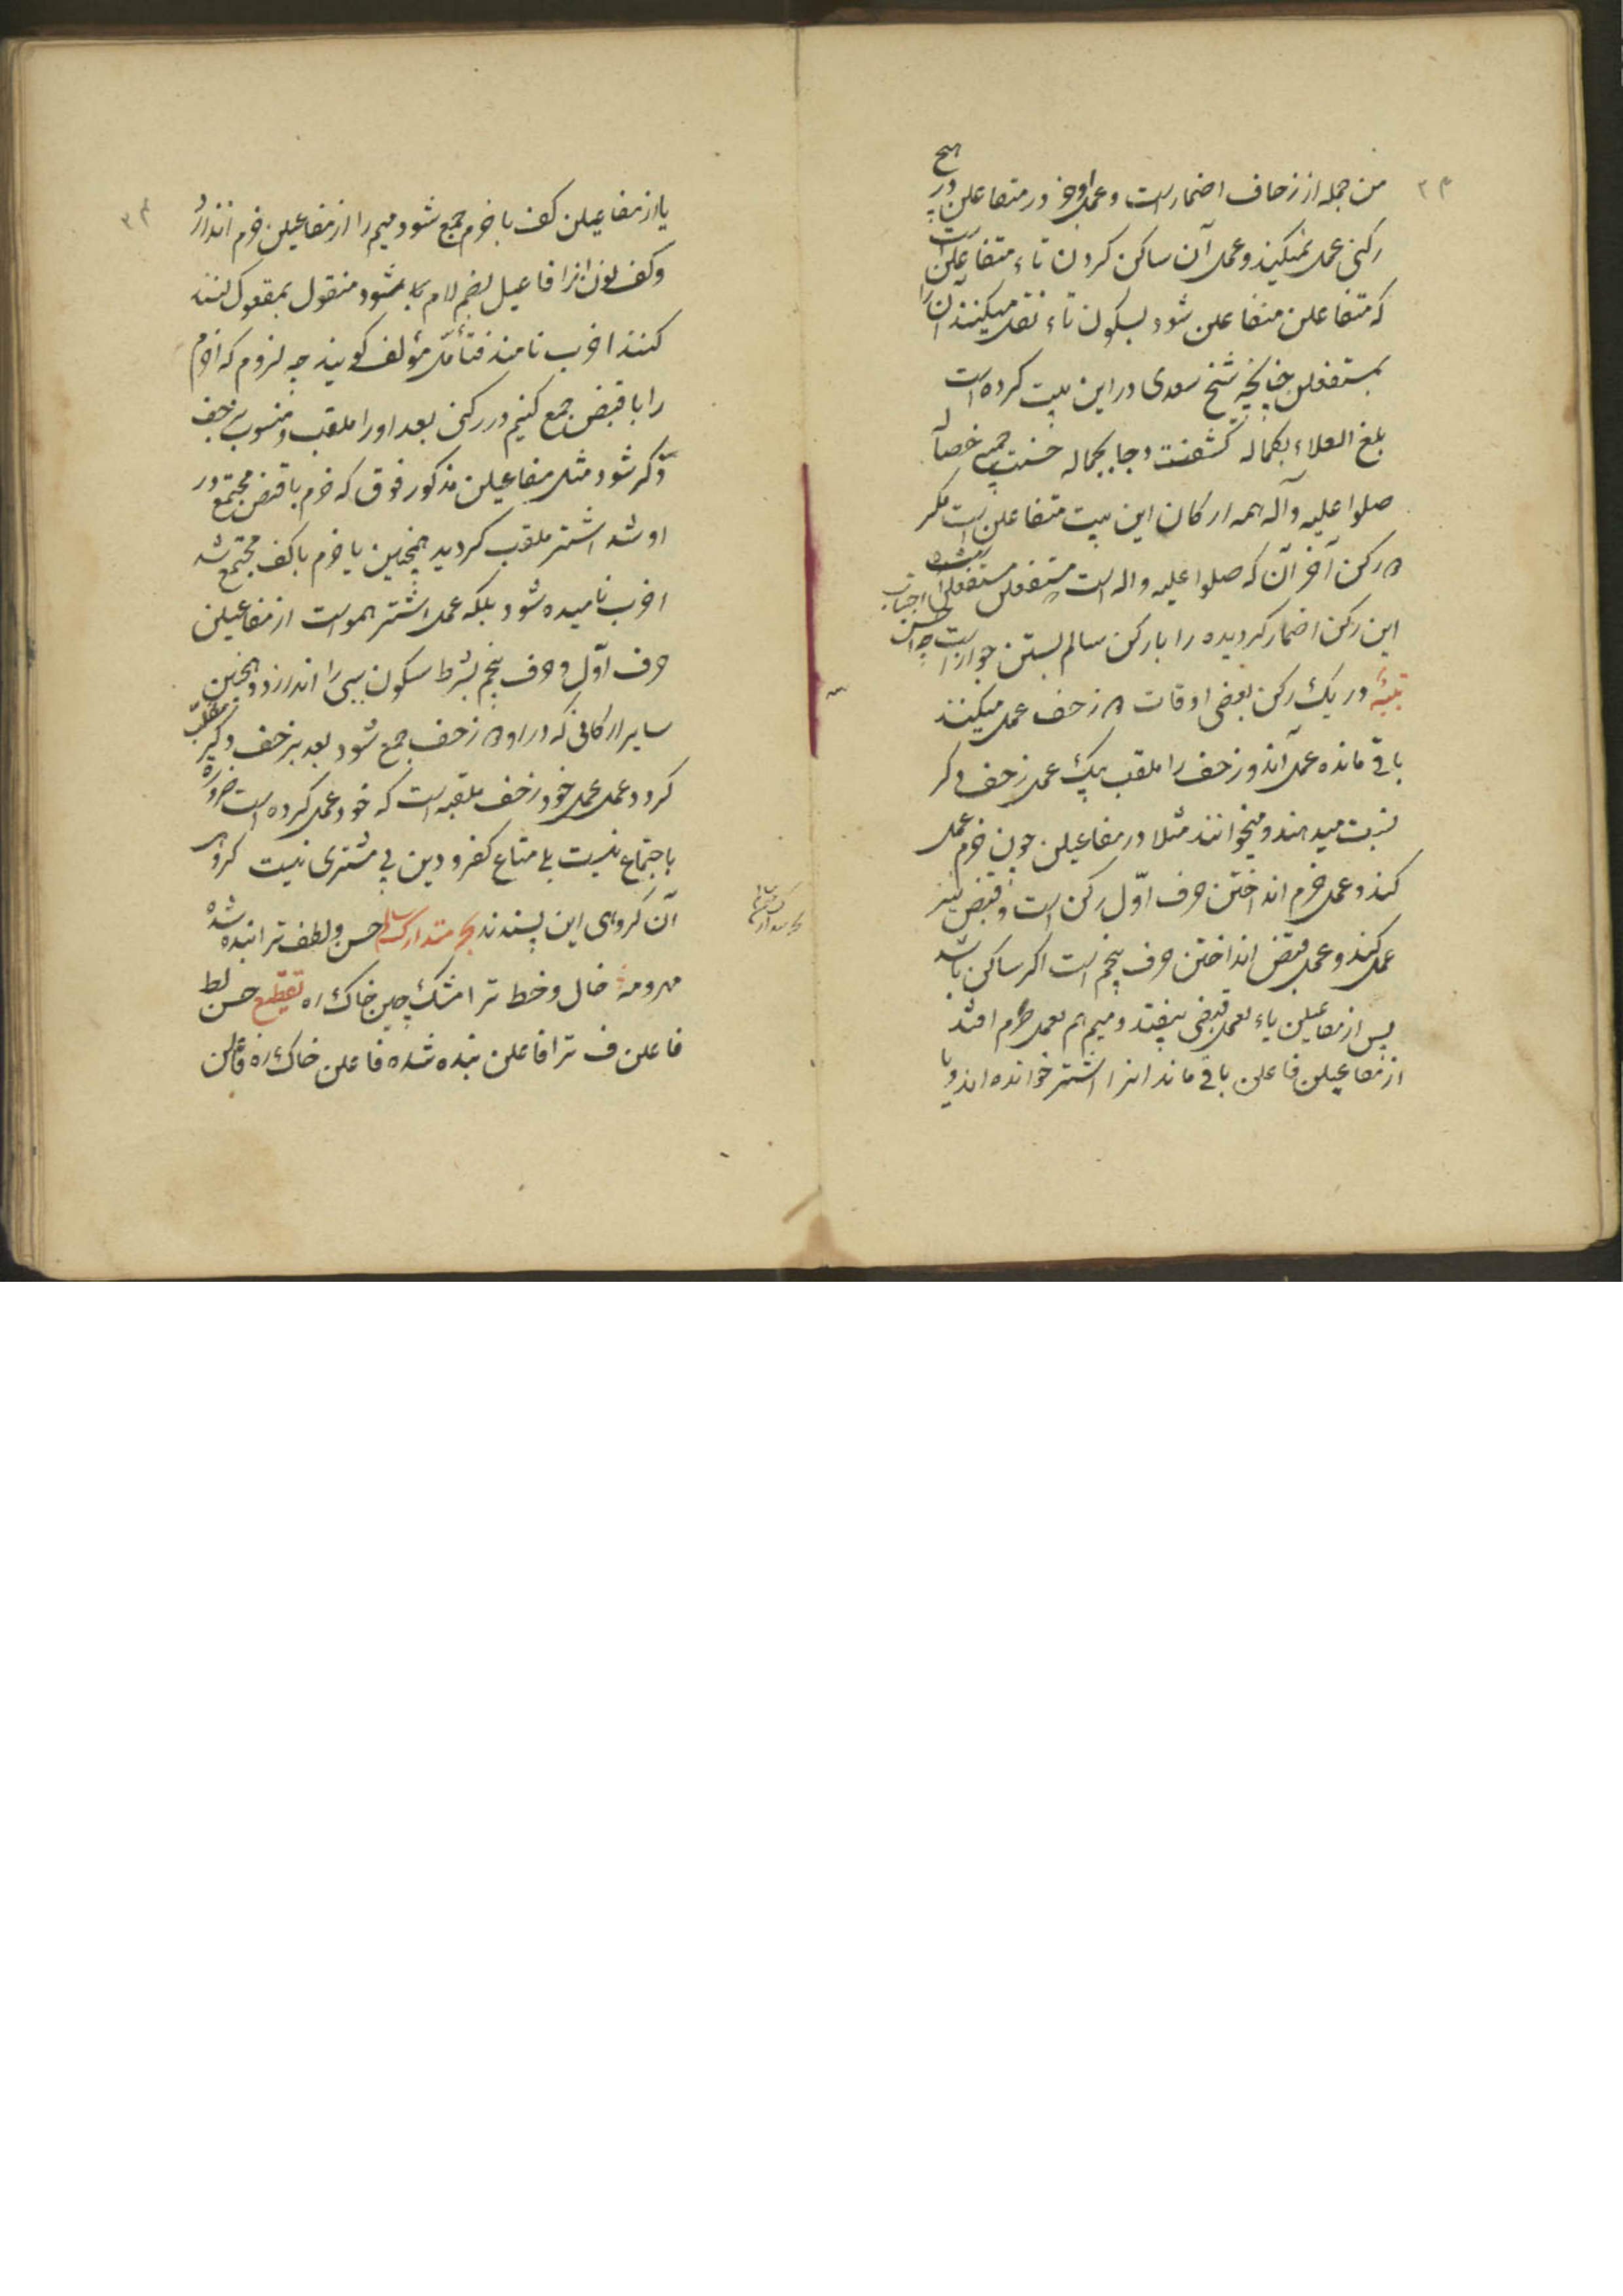 من جمله از زحاف اضمار است و عمل او جز در متفاعلن در هیچ
رکنی عمل نمیکنند و عمل آن ساکن کردن تاء متفاعلن است
که متفاعلن متفاعلن شود بسکون تاء نقل میکنند آن را
بمستفعلن چنانچه شیخ سعدی در این بیت کرده است
بلغ العلاء بکماله کشفت دجا بجماله حسنت جمیع خصاله
صلوا علیه وآله همه ارکان این بیت متفاعلن است مگر
رکن آخر آن که صلوا علیه واله است مستفعلن مستفعلن
این رکن اضمار کردیده را با رکن سالم بستن جواز است
تنبیه در یک رکن بعضی اوقات زحف عمل میکنند
باقی مانده عمل آندو زحف را ملقب بیک عمل زحف دکر
نسبت میدهند و میخوانند مثلا در مفاعیلن چون خرم عمل
کند و عمل خرم انداختن حرف اوّل رکن است و قبض نیز
عمل کند و عمل قبض انداختن حرف پنجم است اکر ساکن باشد
پس از مفاعیلن یاء بعمل قبض بیفتد و میم هم بعمل خرم افتد
از مفاعیلن فاعلن باقی ماند انرا اشتر خوانده اند و یا
۳۴
یا از مفاعیلن کف با خرم جمع شود میم را از مفاعیلن خرم اندازد
و کف نون انرا فاعیل بضم لام بشود منقول بمفعول کنند
کنند اخرب نامند فتأمّل مؤلف کویند چه لزوم که اخرم
را با قبض جمع کنیم در رکنی بعد اورا ملقب و منسوب بزحف
دکر شود مثل مفاعیلن مذکور فوق که خرم با قبض مجتمع در
او شد اشتر ملقب کردید همچنین یا خرم با کف مجتمع شد
اخرب نامیده شود بلکه عمل اشتر هم واست از مفاعیلن
حرف اوّل و حرف پنجم بشرط سکون سببی را اندازد و همچنین
سایر ارکانی که در او زحف جمع شود بعد بزحف دکیر ملقب
کردد عمل عمل خود زحف ملقبه است که خود عمل کرده است ضروره
باجتماع نیست بلی متاع کفر و دین بی مشتری نیست کروهی
آن کروهی این پسندند بحر متدارک سالم حسن و لطف ترا بنده شده
مهر و مه خال و خط ترا مشک چین خاک ره تقطیع حسن لط
فاعلن ف ترا فاعلن بنده شده فاعلن خاک ره فاعلن